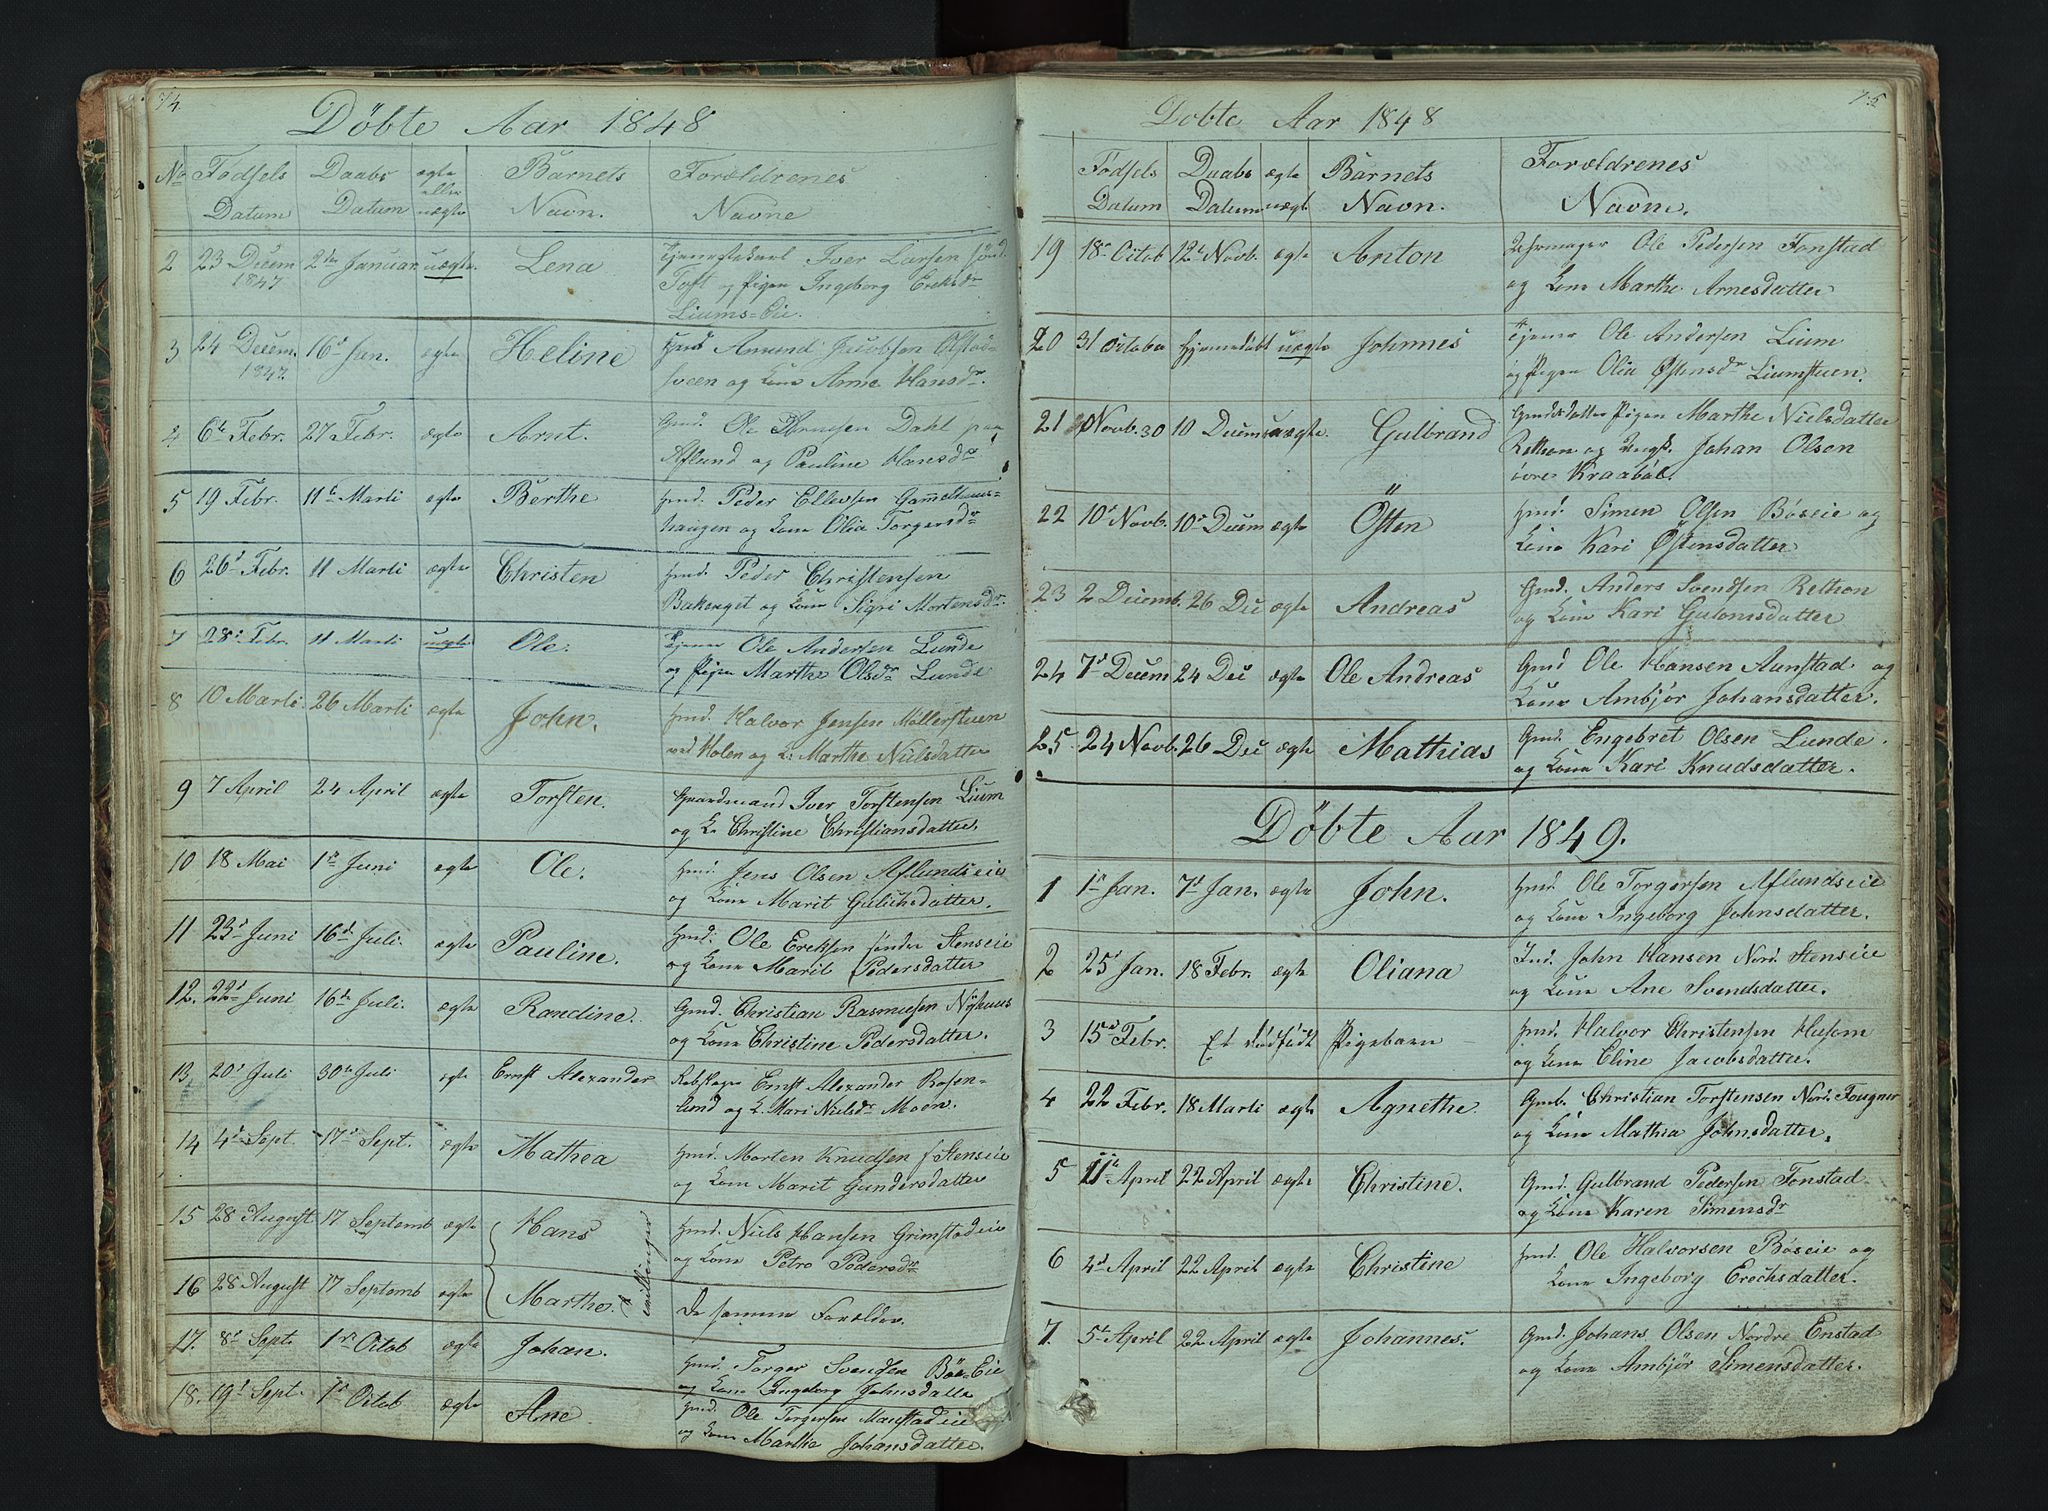 74.
Döbte Aar 1848
No Födsels Datum Daabs Datum ægte eller uægte Barnets Navn. Forældrenes Navne
2 23 Decem 1847 2den Januar. uægte. Lena Iver Larsen
Toft og Pigen Ingeborg Ereksdr
Liums-Eie.
3 24 Decem. 1847. 16d Jan. ægte Heline Amund Jacobsen Ofstad-
sveen og Kone Anne Hansdr.
4 6te Febr. 27 Febr. ægte Arnt. Gmd. Ole Dahl paa
Aflund og Pauline Hansdr
5 19 Febr. 11te Marti ægte Berthe Hmd. Peder Ellevsen Gammelhuus-
haugen og Kone Olia Torgersdr
6 26d Febr. 11 Marti ægte Christen Hmd. Peder Christensen
Bakenget og Kone Sigri Mortensdr.
7 28d Febr. 11 Marti uægte Ole. Tjener Ole Andersen Lunde
og Pigen Marthe Olsdr Lunde
8 10 Marti. 26 Marti ægte John. Hmd. Halvor Jensen Möllerstuen
ved Holen og K: Marthe Nielsdatter
9 7 April 24 April ægte Torsten. Gaardmand Iver Torstensen Lium
og K. Christine Christiansdatter.
10 18 Mai 1ste Juni ægte Ole. Hmd. Jens Olsen Aflundseie
og Kone Marit Gulichsdatter.
11 23d Juni 16de Juli. ægte Pauline. Hmd. Ole Ereksen söndre Stenseie
og Kone Marit Pedersdatter
12. 22d Juni 16de Juli. ægte Randine. Gmd. Christian Rasmusen Nÿhuus
og Kone Christine Pedersdatter.
13. 20d Juli 30te Juli ægte Ernst Alexander Rebslager Ernst Alexander Rosen-
lund og K. Mari Nielsdr Moen.
14 4d Sept. 17d Sept. ægte Mathea Hmd. Morten Knudsen Stenseie
og Kone Marit Gundersdatter
15 28 August 17 Septemb ægte Hans Hmd. Niels Hansen Grimstadeie
og Kone Petro Pedersdr
tvillinger
16 28 August 17 Septemb ægte Marthe. De samme Forældre.
17. 8d Sept. 1ste Octob ægte Johan. Hmd. Torger Svendsen Böe-Eie
og Kone Ingeborg Johnsdatte
18. 19d Sept. 1ste Octob ægte Ane Hmd. Ole Torgersen
og Kone Marthe Johansdatter.
75
Döbte Aar 1848
Födsels Datum Daabs Datum ægte uægte Barnets Navn. Forældrenes Navne.
19 18de Octob 12te Novb. ægte Anton Uhrmager Ole Pedersen Fonstad
og Kone Marthe Arnesdatter
20 31 Octobe hjemmedöbt uægte Johnnes Tjener Ole Andersen Lium
og Pigen Olia Östensdr Liumstuen.
21 Novb. 30 10 Decem uægte. Gulbrand Marthe Nielsdatter
Rethon og Johan Olsen
övre Kraaböl.
22 10d Novb. 10d Decem ægte Östen Hmd. Simen Olsen Böseie og
Kone Kari Östensdatter
23 2 Decemb. 26 Dec ægte Andreas Gmd. Anders Svendsen Rethon
og Kone Kari Gulomsdatter
24 7d Decem 24 Dec ægte Ole Andreas Gmd Ole Hansen Aunstad og
Kone Ambjör Johansdatter.
25. 24 Novb. 26 Dec ægte Mathias Gmd. Engebret Olsen Lunde
og Kone Kari Knudsdatter.
Döbte Aar 1849.
1 1ste Jan. 7d Jan. ægte John. Hmd. Ole Torgersen Aflundseie
og Kone Ingeborg Johnsdatter.
2 25d Jan. 18 Febr. ægte Oliana Ind. John Hansen Nord. Stenseie
og Kone Ane Svendsdatter.
3 15de Febr. Et dödfödt Pigebarn Hmd. Halvor Christensen Husom
og Kone Eline Jacobsdatter.
4 22 Febr. 18 Marti ægte Agnethe Gmd. Christian Torstensen Nord. Fougner
og Kone Mathea Johnsdatter.
5 11te April 22 April ægte Christine. Gmd. Gulbrand Pedersen Fonstad
og Kone Karen Simensdr
6 4d April 22 April ægte Christine Hmd. Ole Halvorsen Böseie og
Kone Ingeborg Erechsdatter.
7. 5te April 22 April ægte Johannes. Gmd. Johans Olsen Nordre Enstad
og Kone Ambjör Simensdatter.